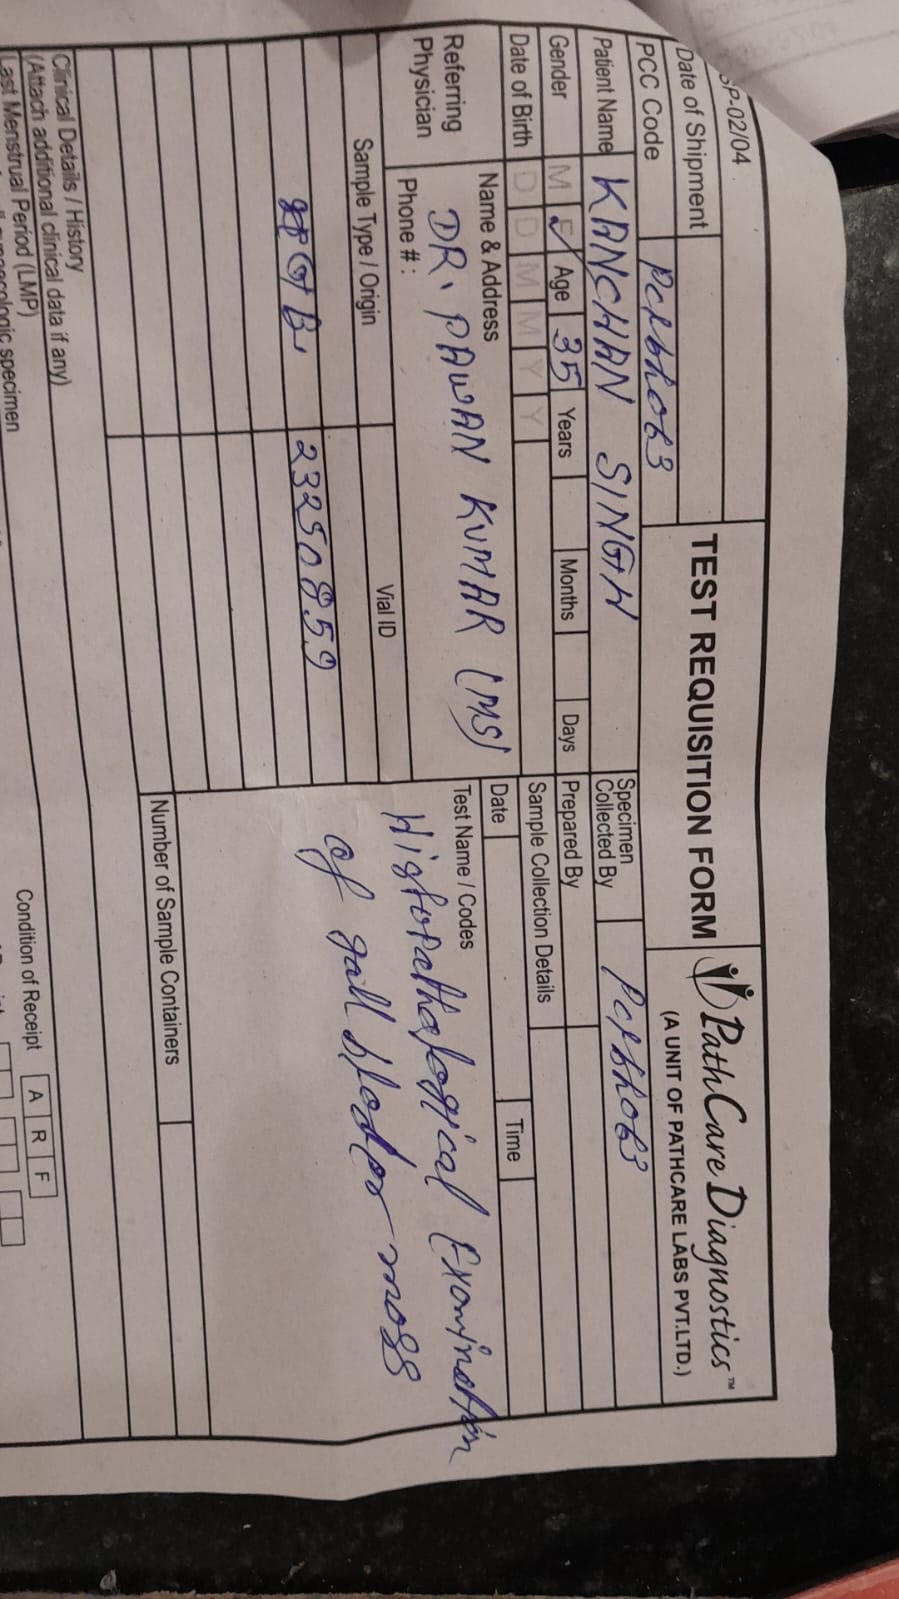 SP-02/04
TEST REQUISITION FORM
PathCare Diagnostics™
(A UNIT OF PATHCARE LABS PVT.LTD.)
Date of Shipment
PCC Code
Patient Name KANCHAN SINGH
Specimen Collected By
Gender M F Age 35 Years Months Days
Prepared By
Date of Birth D D M M Y Y
Sample Collection Details
Date Time
Referring Physician
Name & Address
DR. PAWAN KUMAR (MS)
Phone # :
Test Name / Codes
Histopathological Examination
of gall bladder mass
Sample Type / Origin Vial ID
Number of Sample Containers
Clinical Details / History
(Attach additional clinical data if any)
Condition of Receipt A R F
Last Menstrual Period (LMP)
specimen